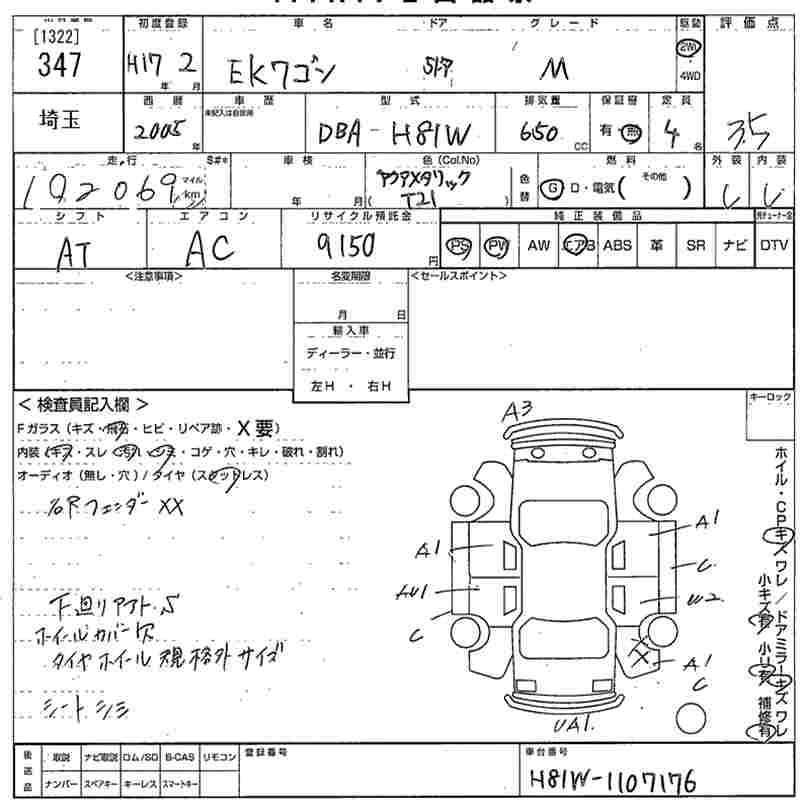 [1322]
初度登録 車名 ドア グレード 駆動 評価点
347
H17 2
年 月
EKワゴン 5ドア M
2WD
4WD
埼玉
西暦 車歴 型式 排気量 保証書 定員
未記入は自家用
2005 年
DBA-H81W
650 CC
有・無
4 名
3.5
走行 S#* 車検 色(Col.No) 燃料 外装 内装
192069 マイル km
年 月
アクアメタリック
( T21 )
色替
G D・電気( その他 )
シフト エアコン リサイクル預託金 純正装備品
AT AC 9150 円
PS PW AW エアB ABS 革 SR ナビ DTV
<注意事項> 名変期限 <セールスポイント>
月 日
輸入車
ディーラー・並行
左H ・ 右H
<検査員記入欄>
キーロック
Fガラス(キズ・飛石・ヒビ・リペア跡・X要)
内装(キズ・スレ・汚れ・シミ・コゲ・穴・キレ・破れ・割れ)
オーディオ(無し・穴)/タイヤ(スタッドレス)
右Rフェンダー XX
下廻りサフト S
ホイールカバー欠
タイヤホイール規格外サイズ
シート シミ
A3
A1
A1
C
AU1
U2
C
A1
C
UA1.
XX
ホイル・CPキズワレ/ドアミラーキズワレ
小キズ有 小凹有 補修有
後送品
取説 ナビ取説 ロム/SD B-CAS リモコン
ナンバー スペアキー キーレス スマートキー
登録番号
車台番号
H81W-1107176